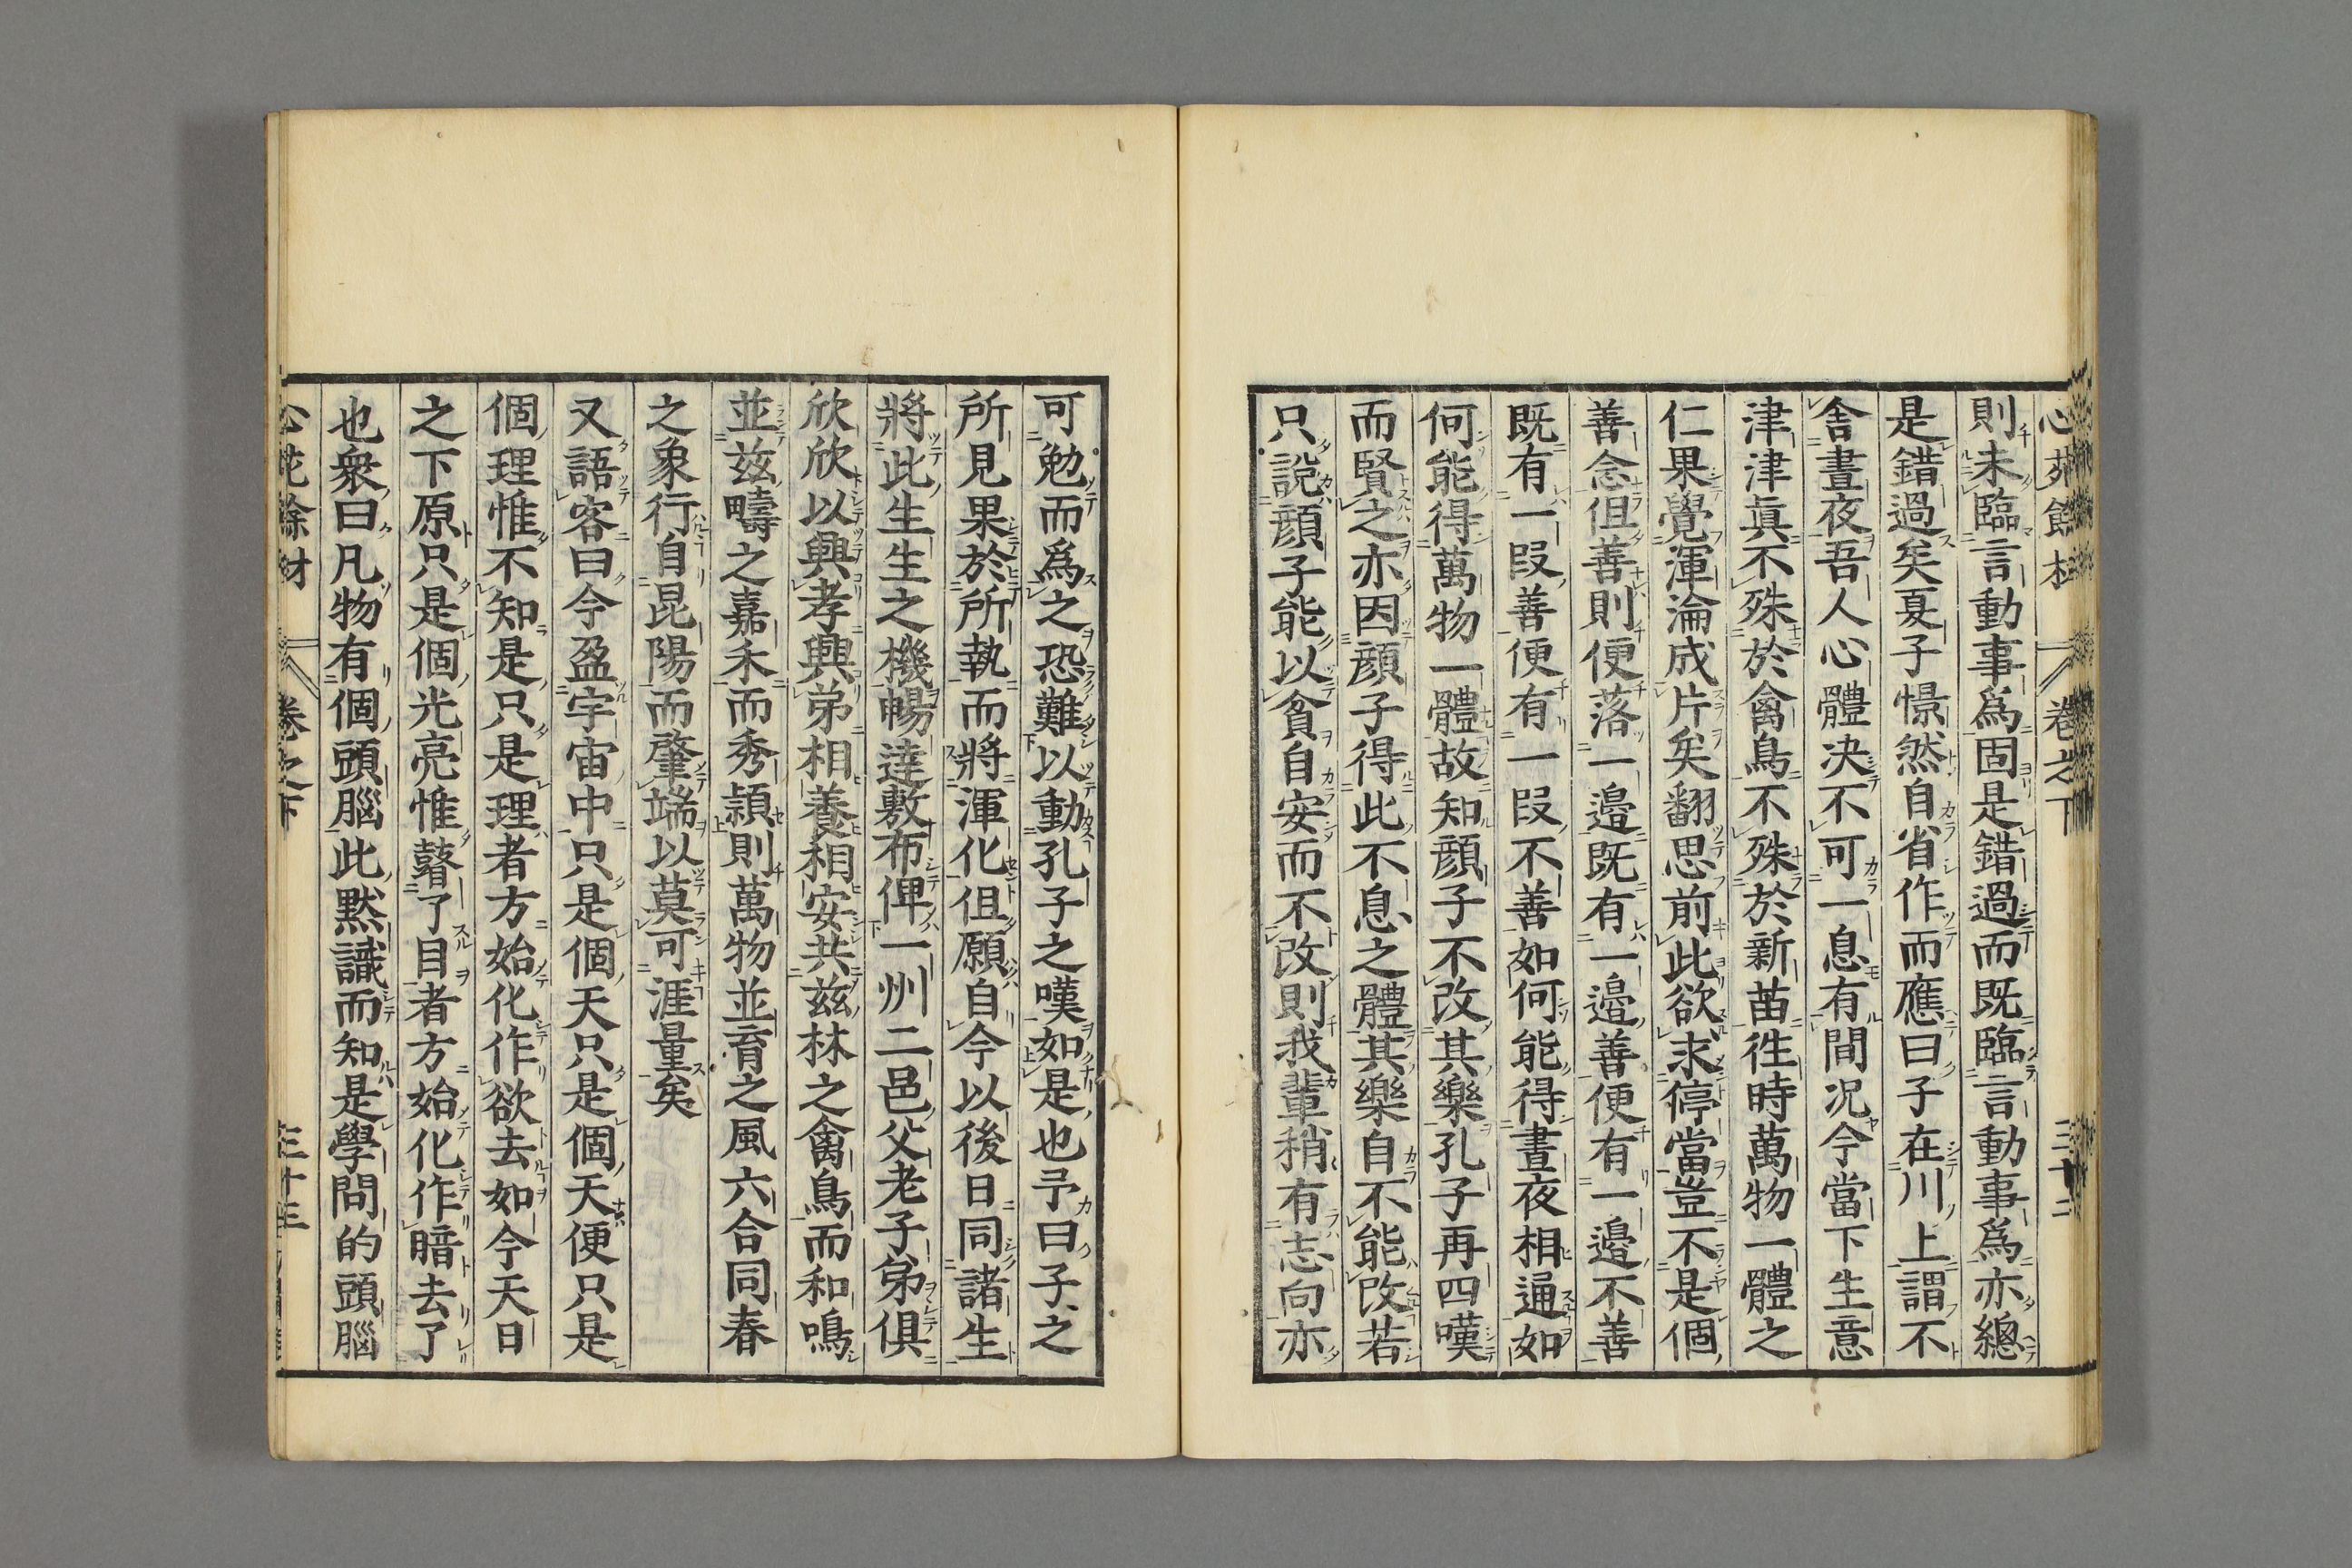 則未臨言動事爲固是錯過而既臨言動事爲亦總
是錯過矣夏子憬然自省作而應曰子在川上謂不
舍晝夜吾人心體决不可一息有間况今當下生意
津津眞不殊於禽鳥不殊於新苗徃時萬物一體之
仁果覺渾淪成片矣翻思前此欲求停當豈不是個
善念但善則便落一邉既有一邉善便有一邉不善
既有一叚善便有一叚不善如何能得晝夜相通如
何能得萬物一體故知顔子不改其樂孔子再四嘆
而賢之亦因顔子得此不息之體其樂自不能改若
只說顔子能以貧自安而不改則我輩稍有志向亦
可勉而爲之恐難以動孔子之嘆如是也予曰子之
所見果於所執而將渾化但願自今以後日同諸生
將此生生之機暢達敷布俾一州二邑父老子弟俱
欣欣以興孝興弟相養相安共茲林之禽鳥而和鳴
並茲疇之嘉禾而秀頴則萬物並育之風六合同春
之象行自昆陽而肇端以莫可涯量矣
又語客曰今盈宇宙中只是個天只是個天便只是
個理惟不知是只是理者方始化作欲去如今天日
之下原只是個光亮惟瞽了目者方始化作暗去了
也衆曰凡物有個頭腦此黙識而知是學問的頭腦
卷之下